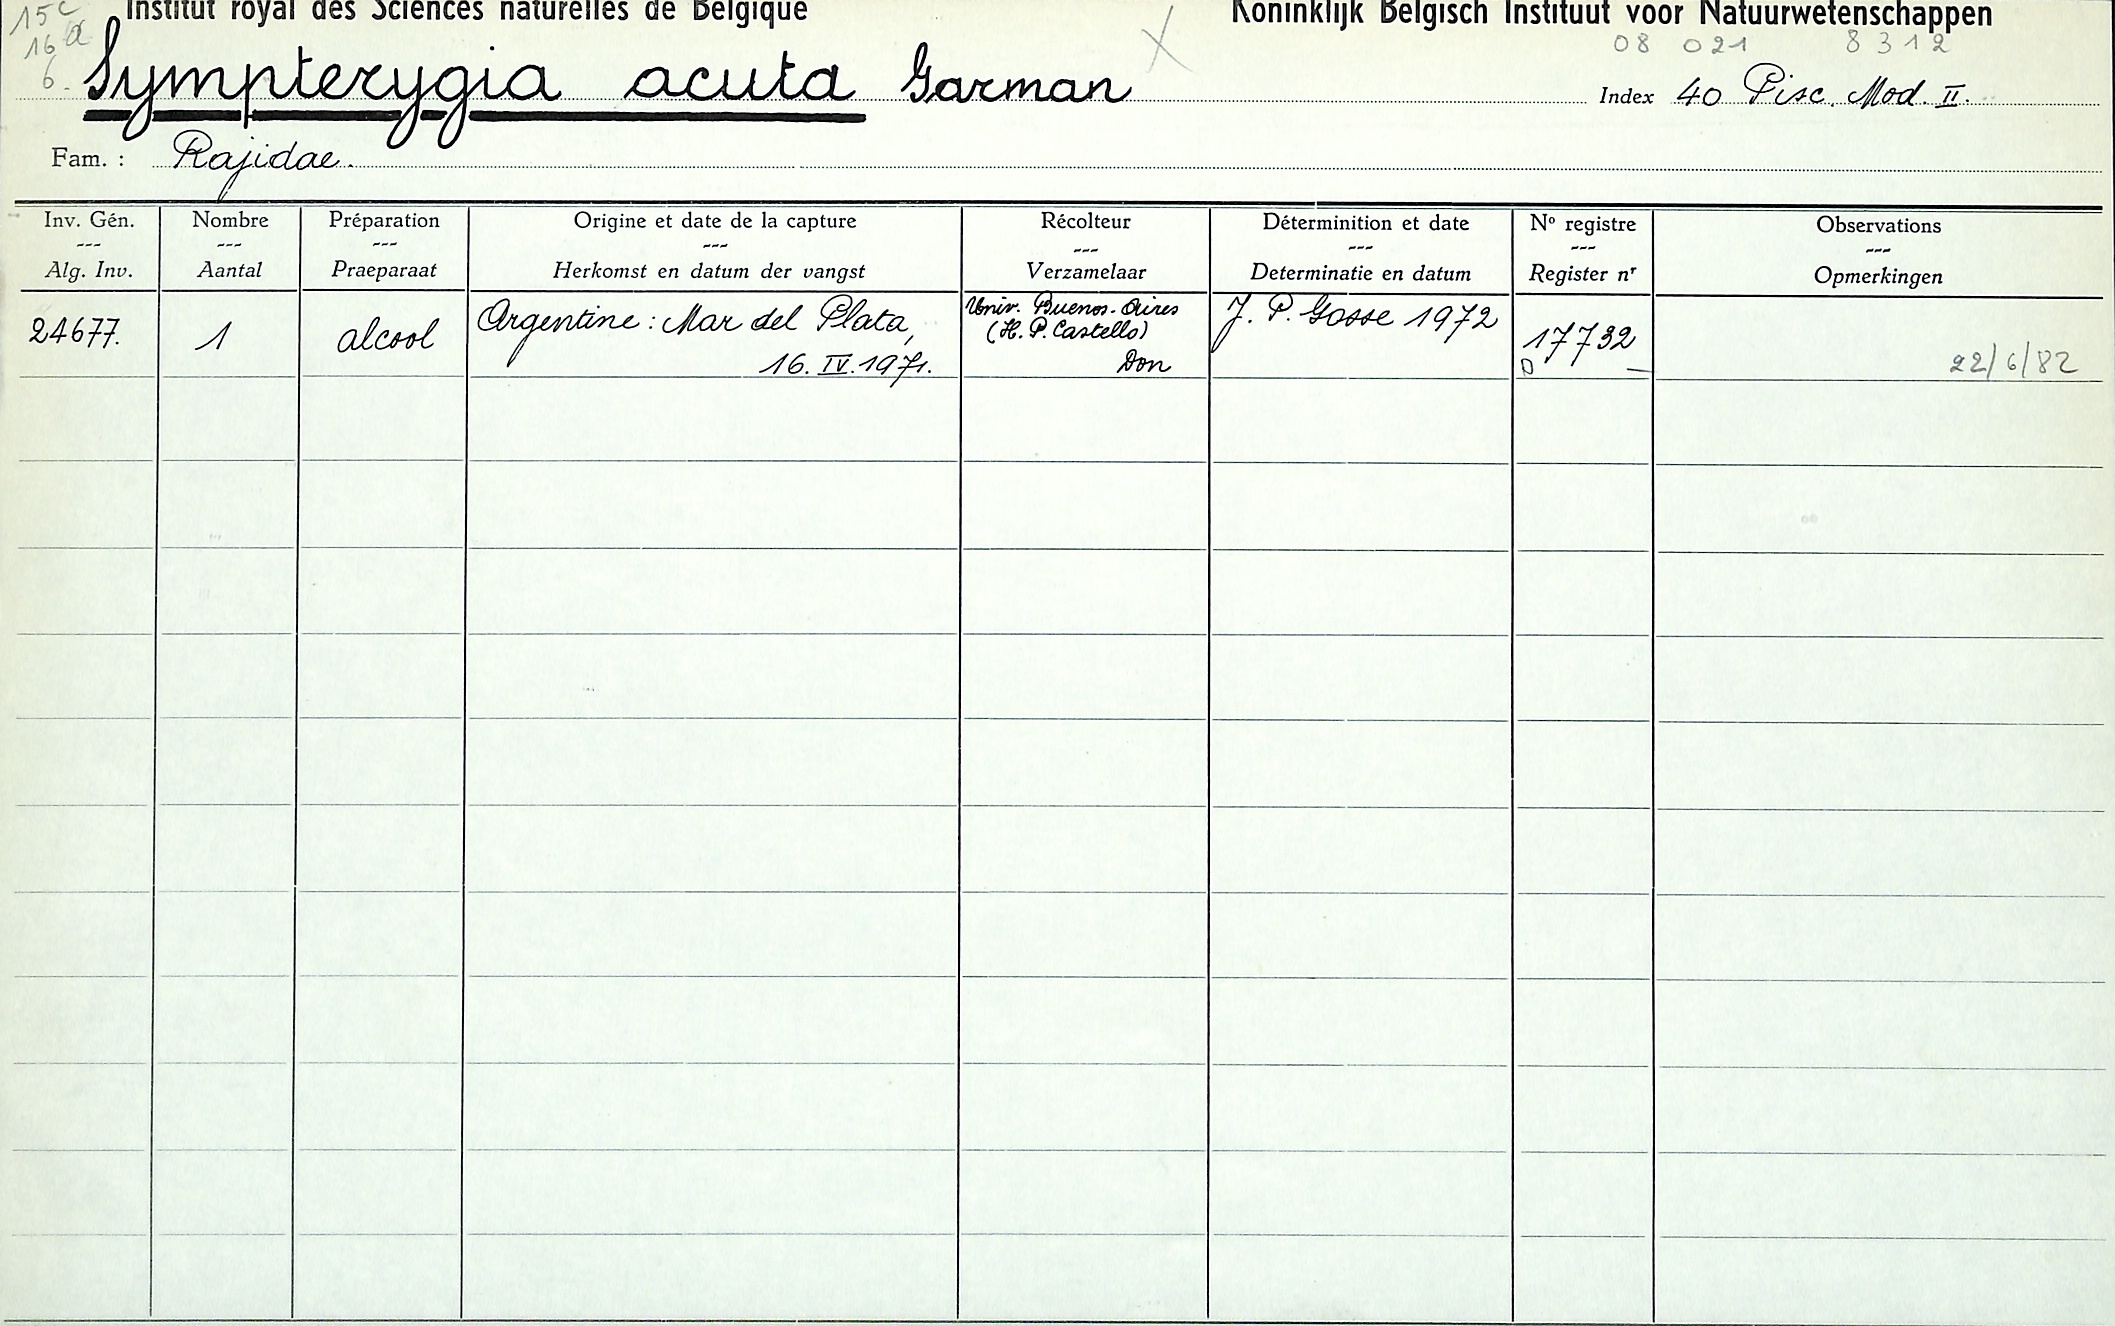 15c
16 a
6.
Institut royal des Sciences naturelles de Belgique
Koninklijk Belgisch Instituut voor Natuurwetenschappen
08 021 8312
Sympterygia acuta Garman
Index 40 Pisc. Mod. II.
Fam. : Rajidae.
Inv. Gén. Nombre Préparation Origine et date de la capture Récolteur Déterminition et date Nº registre Observations
--- --- --- --- --- --- --- ---
Alg. Inv. Aantal Praeparaat Herkomst en datum der vangst Verzamelaar Determinatie en datum Register nʳ Opmerkingen
24677. 1 alcool Argentine : Mar del Plata, 16. IV. 1971.
Univ. Buenos-Aires
(H. P. Castello)
Don
J. P. Gosse 1972
17732
D
22/6/82